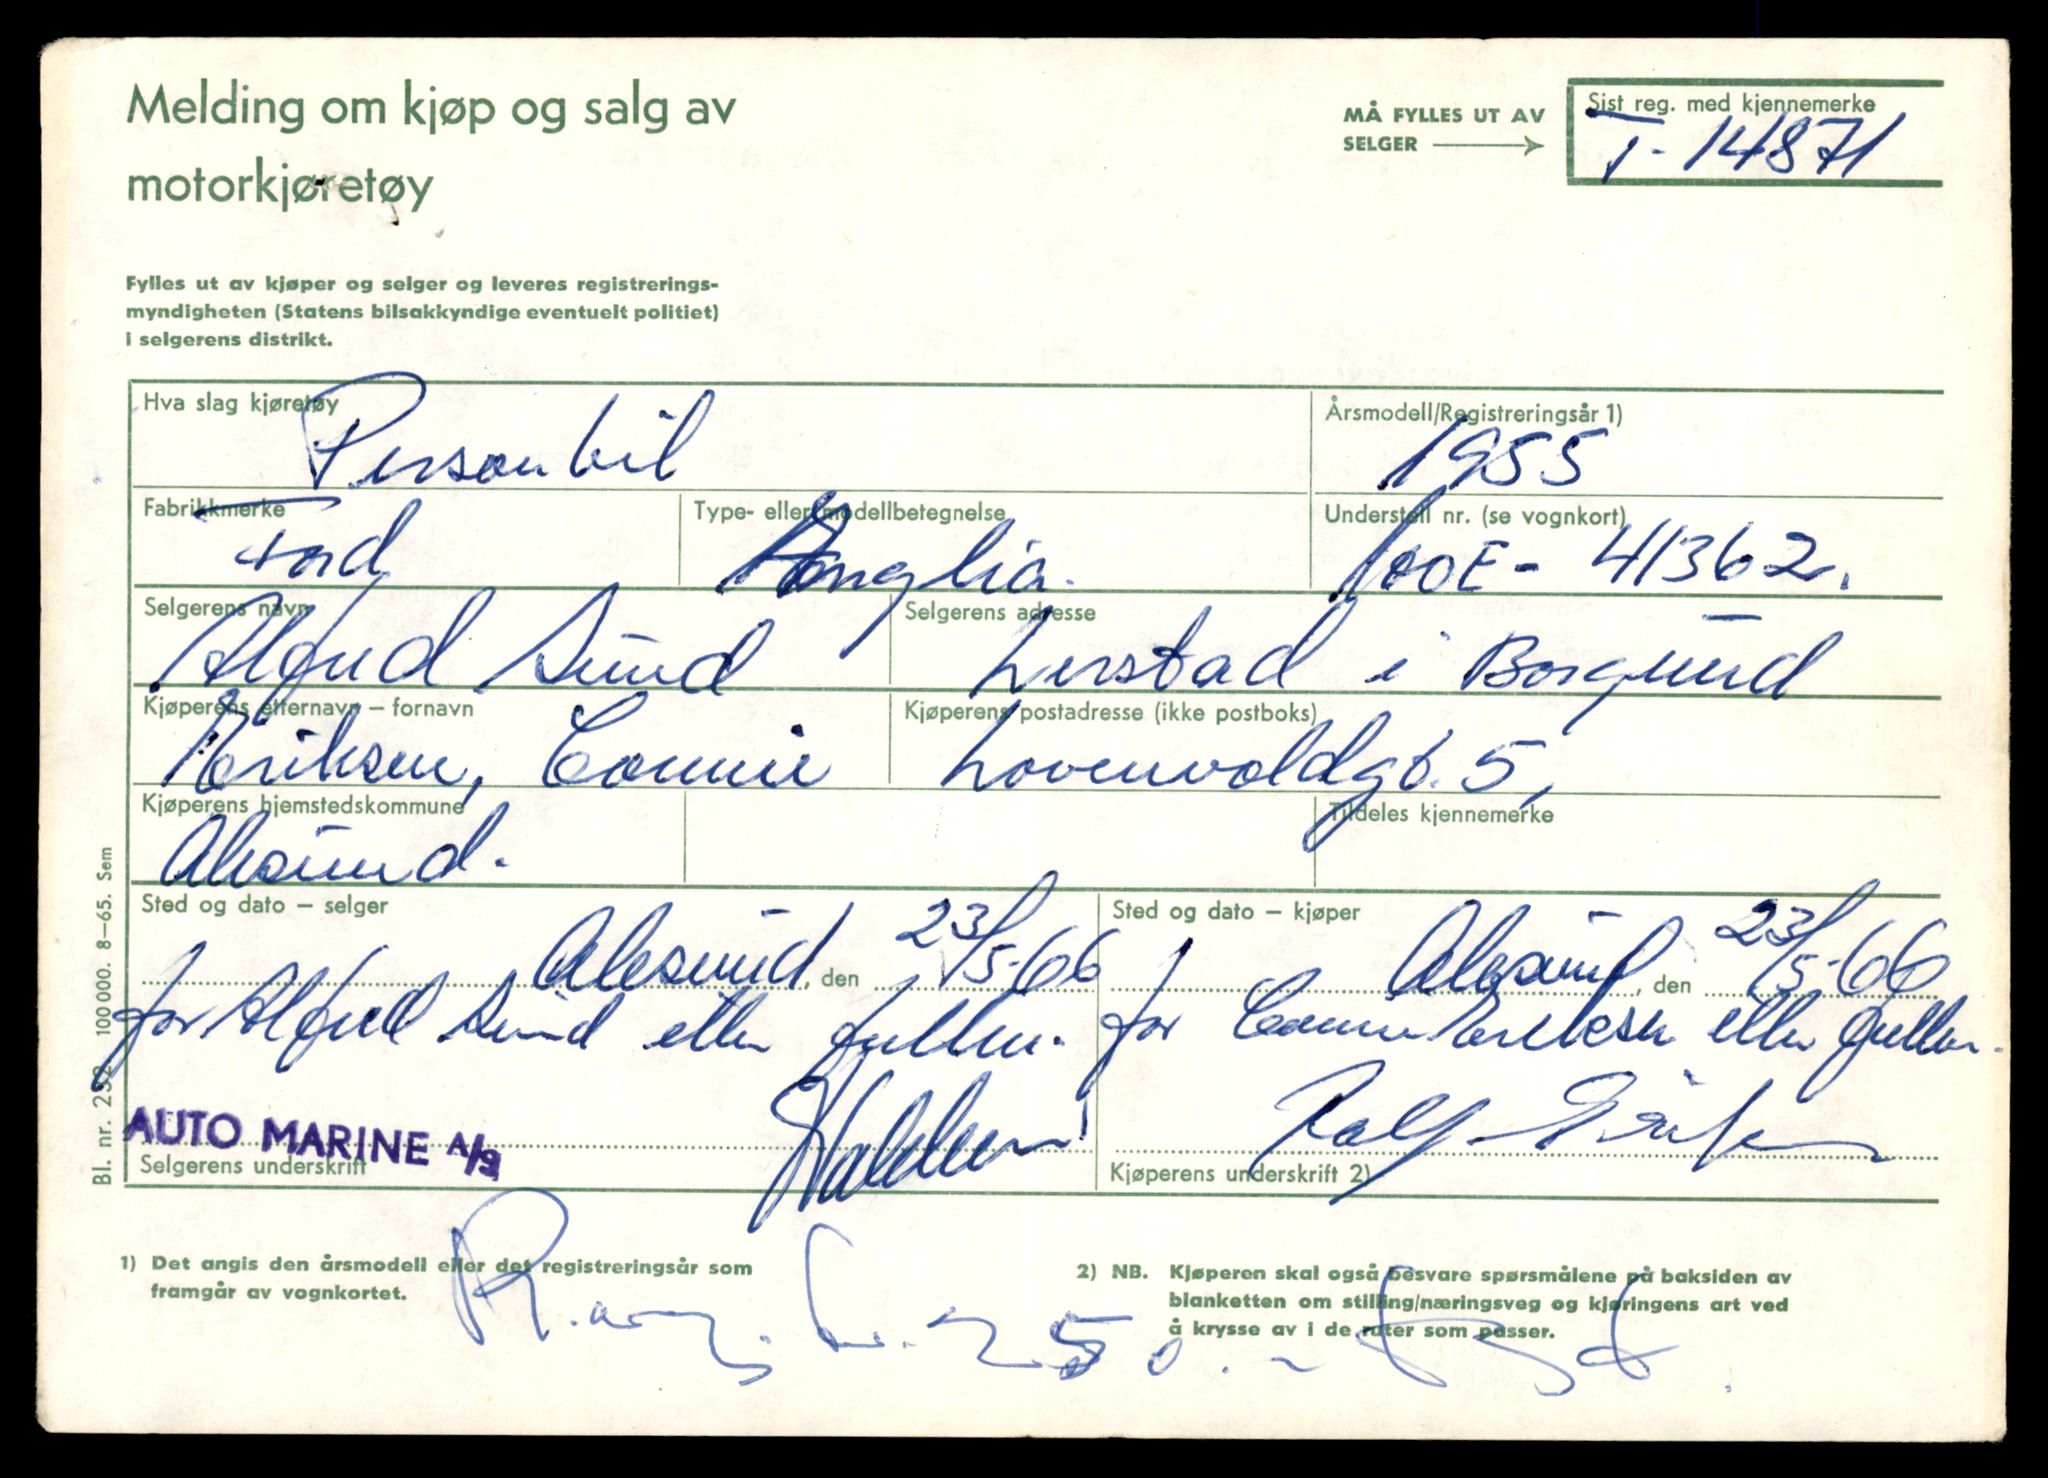 Melding om kjøp og salg av
motorkjøretøy
MÅ FYLLES UT AV
SELGER
Sist reg. med kjennemerke
T- 14871
Fylles ut av kjøper og selger og leveres registrerings-
myndigheten (Statens bilsakkyndige eventuelt politiet)
i selgerens distrikt.
Hva slag kjøretøy
Personbil
Årsmodell/Registreringsår 1)
1955
Fabrikkmerke
Ford
Type- eller modellbetegnelse
Anglia.
Understell nr. (se vognkort)
100E - 41362.
Selgerens navn
Alfred Sund
Selgerens adresse
Lerstad i Borgund
Kjøperens etternavn – fornavn
Eriksen, Connie
Kjøperens postadresse (ikke postboks)
Lovenvoldgt. 5,
Kjøperens hjemstedskommune
Ålesund.
Tildeles kjennemerke
Sted og dato – selger
Ålesund, den 23/5-66
for Alfred Sund etter fullm.
AUTO MARINE A/S
Selgerens underskrift
Sted og dato – kjøper
Ålesund, den 23/5-66
for Connie Eriksen etter fullm.
Rolf Eriksen
Kjøperens underskrift 2)
1) Det angis den årsmodell eller det registreringsår som
framgår av vognkortet.
2) NB. Kjøperen skal også besvare spørsmålene på baksiden av
blanketten om stilling/næringsveg og kjøringens art ved
å krysse av i de ruter som passer.
kr. 250.-
Bl. nr. 252 100 000. 8–65. Sem